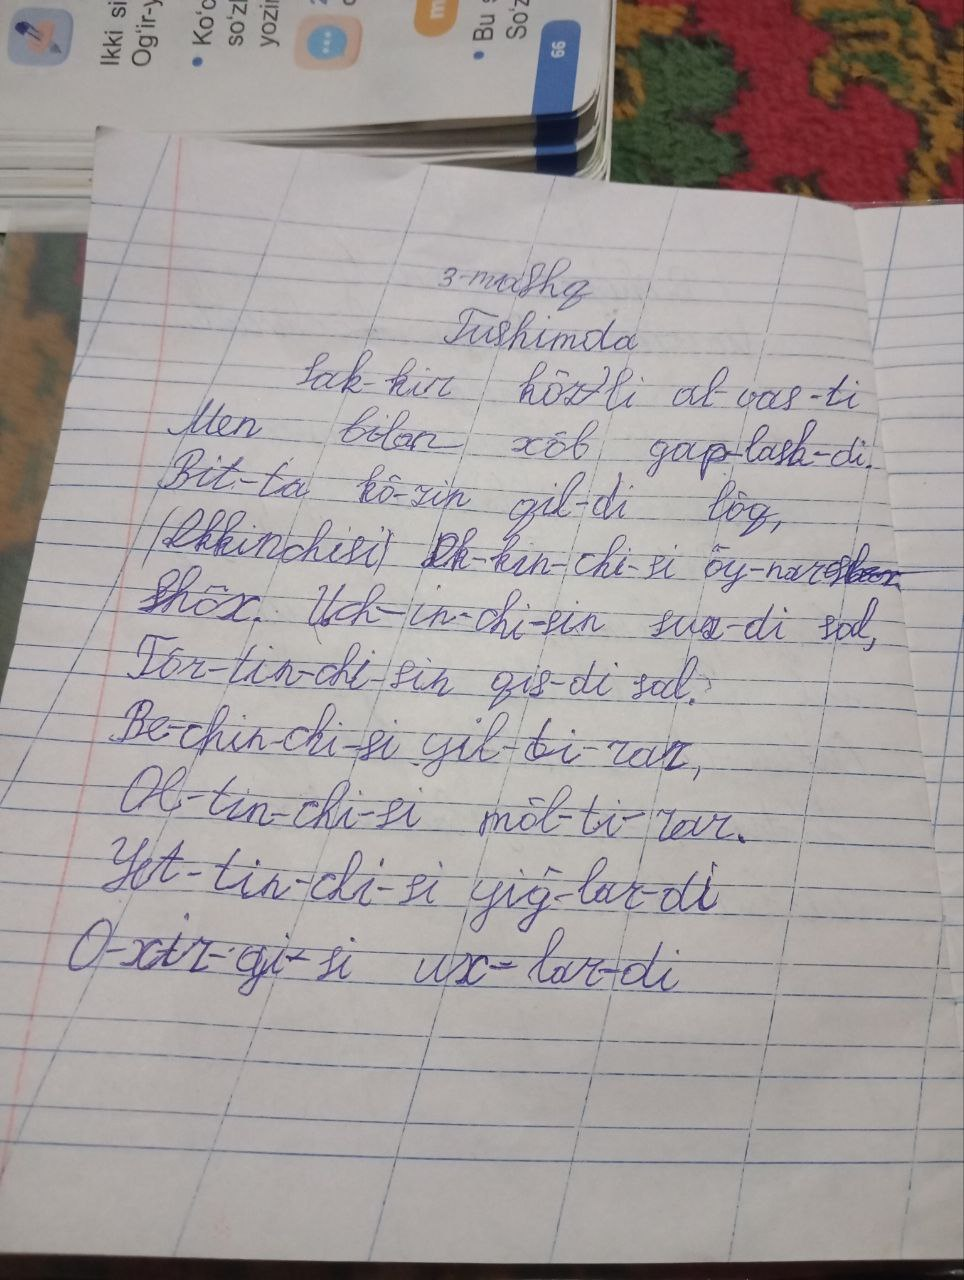 Ikki si
Og'ir-y
• Ko'c
so'zl
yozir
• Bu s
So'z
66
3-mashq
Tushimda
Sak-kir kōz li al-vas-ti
Men bilan xōb gap-lash-di.
Bit-ta kō-zin qil-di lōq,
(Ikkinchisi) Ik-kin-chi-si ōy-nar
Shōx. Uch-in-chi-sin suz-di sal,
Tōr-tin-chi-sin qis-di sal.
Be-chin-chi-si yil-ti-rar,
Ol-tin-chi-si mōl-ti-rar.
Yet-tin-chi-si yiḡ-lar-di
O-xir-gi-si ux-lar-di